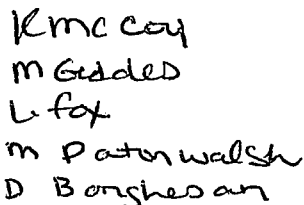 K McCoy
M Geddes
L. fox
M Paton walsh
D Borghesan